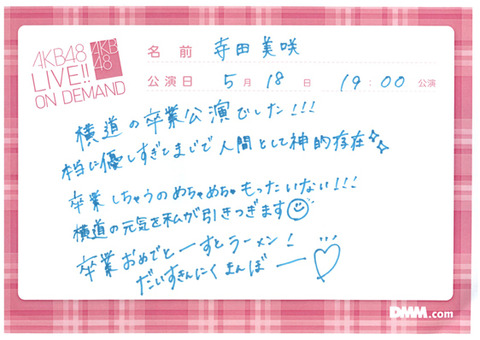 AKB48
LIVE!!
ON DEMAND
AKB
48
名前 寺田美咲
公演日 5月18日 19:00公演
横道の卒業公演でした!!!
本当に優しすぎとまじで人間として神的存在
卒業しちゃうのめちゃめちゃもったいない!!!
横道の元気を私が引きつぎます
卒業おめでとーすとラーメン!
だいすきんにくまんぼー
DMM.com